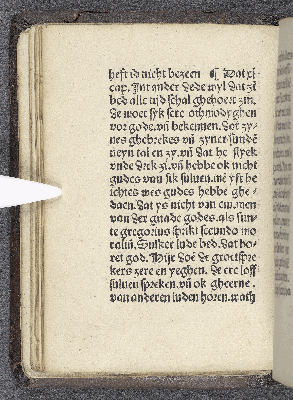 heft id nicht bezeen ¶ Dat xi
cap. Int ander dede wyl dat zī
bed alle tijd schal ghehoert zin.
de moet syk sere othmodyghen
vor gode. vñ bekennen. dat zy-
nes ghebrekes vñ zyner sunden
neyn tal en zy. vñ dat he
vnde vñ hebbe ok nicht
gudes van sik suluen. mē yft he
ichtes wes gudes hebbe ghe-
daen. dat ys nicht van em. men
van der gnade godes. als sun-
te gregorius sprikt secundo mo
raliū. Sulker lude bed. dat ho-
ret god. Mijr doē de grotspre-
kers zere en yeghen. de ere loff
suluen spreken. vñ ok gheerne
van anderen luden horen.